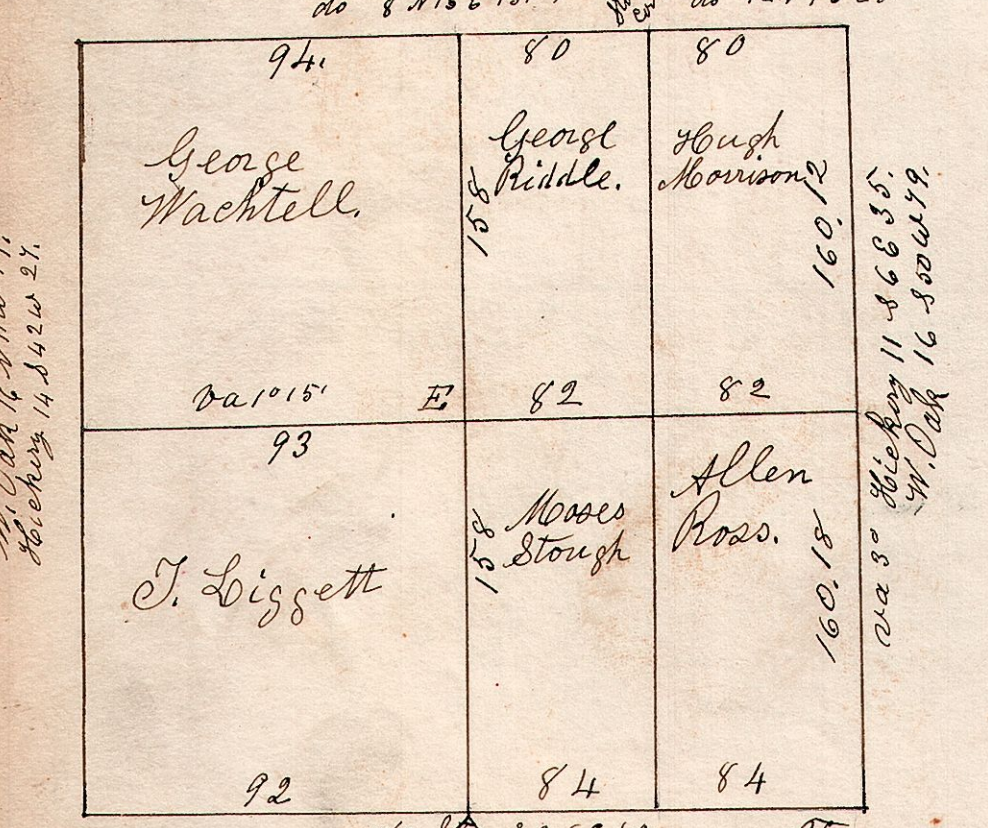 94.
80
80
George
Wachtell.
George
Riddle.
Hugh
Morrison
158
160.12
Va 1° 15'
E
82
82
93
T. Liggett
Moses
Stough
Allen
Ross.
158
160.18
92
84
84
Hickery 14 S 42 W 27.
va 3° Hickery 11 S 6 E 35.
W. Oak 16 S 50 W 49.